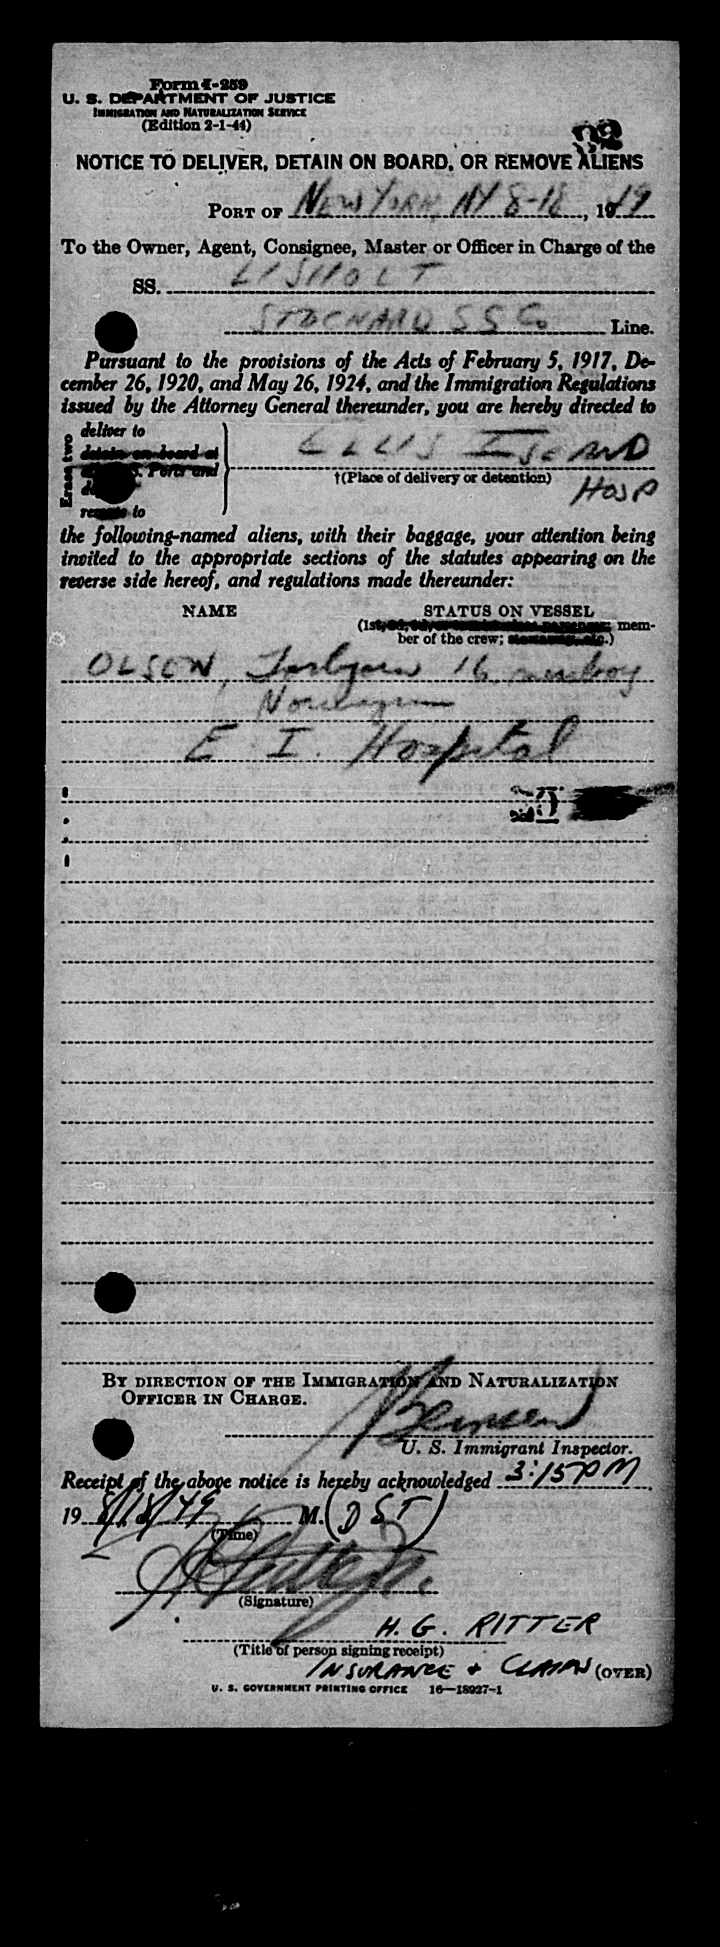 Form I-259
U. S. DEPARTMENT OF JUSTICE
IMMIGRATION AND NATURALIZATION SERVICE
(Edition 2-1-44)
NOTICE TO DELIVER, DETAIN ON BOARD, OR REMOVE ALIENS
PORT OF NEW YORK, NY 8-18, 1949
To the Owner, Agent, Consignee, Master or Officer in Charge of the
SS. LISHOLT
STOCKARD SS Co Line.
Pursuant to the provisions of the Acts of February 5, 1917, De-
cember 26, 1920, and May 26, 1924, and the Immigration Regulations
issued by the Attorney General thereunder, you are hereby directed to
Erase two
deliver to
detain on board at
Ports and
remove to
ELLIS ISLAND
†(Place of delivery or detention)
HOSP
the following-named aliens, with their baggage, your attention being
invited to the appropriate sections of the statutes appearing on the
reverse side hereof, and regulations made thereunder:
NAME STATUS ON VESSEL
(1st, mem-
ber of the crew; .)
OLSEN, Torbjorn 16 messboy
Norwegian
E. I. Hospital
BY DIRECTION OF THE IMMIGRATION AND NATURALIZATION
OFFICER IN CHARGE.
U. S. Immigrant Inspector.
Receipt of the above notice is hereby acknowledged 3:15 PM,
19 8/18/49 M. (DST)
(Time)
(Signature)
H. G. RITTER
(Title of person signing receipt)
INSURANCE + CLAIMS (OVER)
U. S. GOVERNMENT PRINTING OFFICE 16—18927-1